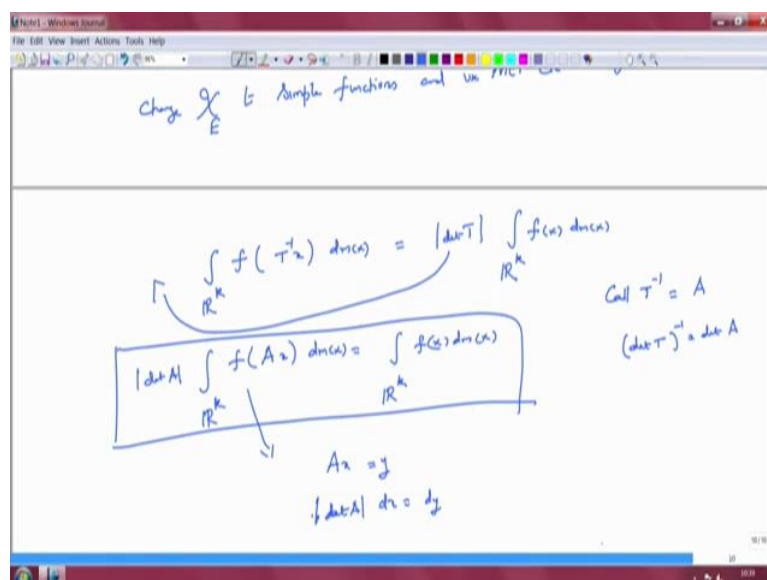 Note1 - Windows Journal
File Edit View Insert Actions Tools Help
Change χ_E to simple functions and use MCT
∫_{ℝ^k} f(T^{-1}x) dm(x) = |det T| ∫_{ℝ^k} f(x) dm(x)
Call T^{-1} = A
(det T)^{-1} = det A
|det A| ∫_{ℝ^k} f(Ax) dm(x) = ∫_{ℝ^k} f(x) dm(x)
Ax = y
|det A| dx = dy
10/10
10
10:39